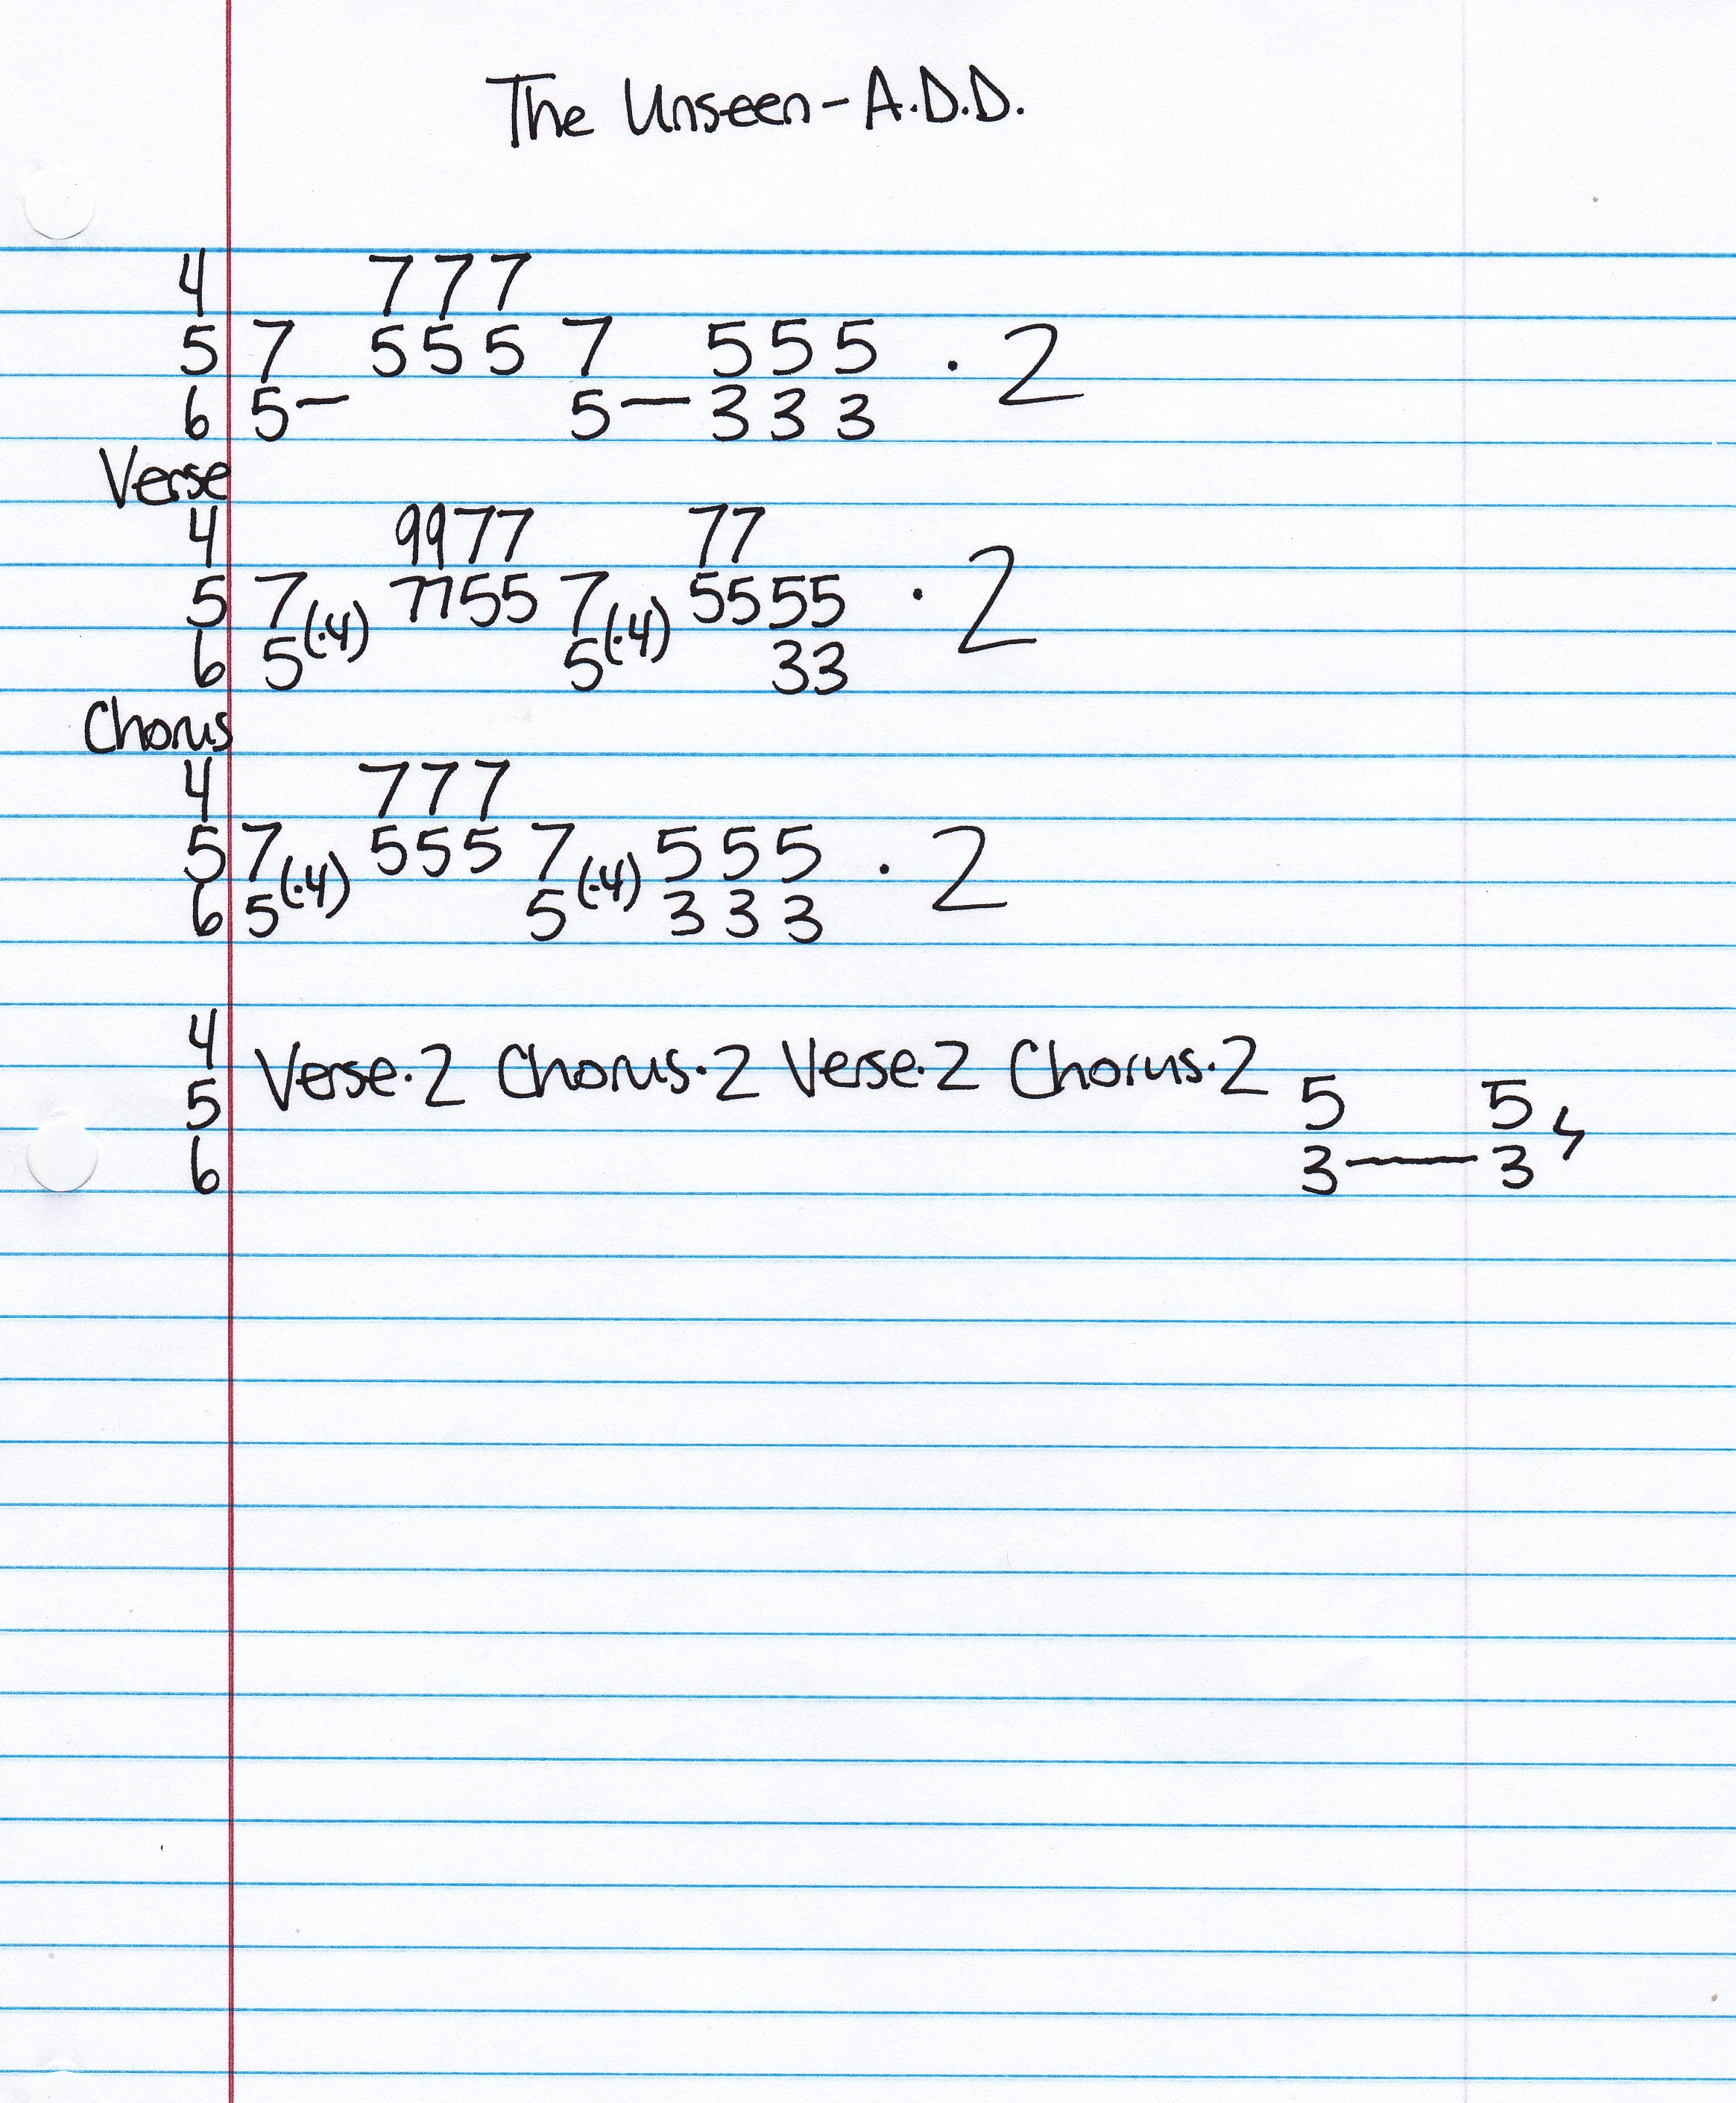 The Unseen - A.D.D.
4 7 7 7
5 7 5 5 5 7 5 5 5 · 2
6 5 — 5 — 3 3 3
Verse
4 9977 77
5 7 (·4) 7755 7 (·4) 5555 · 2
6 5 5 33
Chorus
4 7 7 7
5 7 (·4) 5 5 5 7 (·4) 5 5 5 · 2
6 5 5 3 3 3
4
Verse·2 Chorus·2 Verse·2 Chorus·2
5 5 5
6 3 — 3